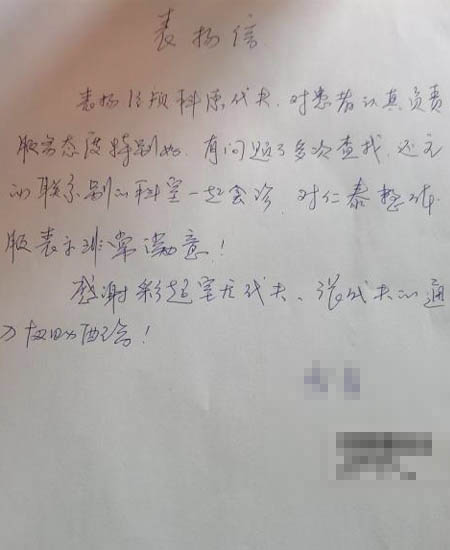 表扬信
表扬 科 代夫, 对患者认真负责
服务态度特别好, 有问题了多次查找, 还主
的联系别的科室一起会诊, 对仁泰整体
服 表示非常满意!
感谢彩超室 代夫、张代夫的通
力 配合!